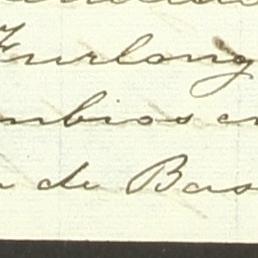 Furlong
mbios en
de Bas